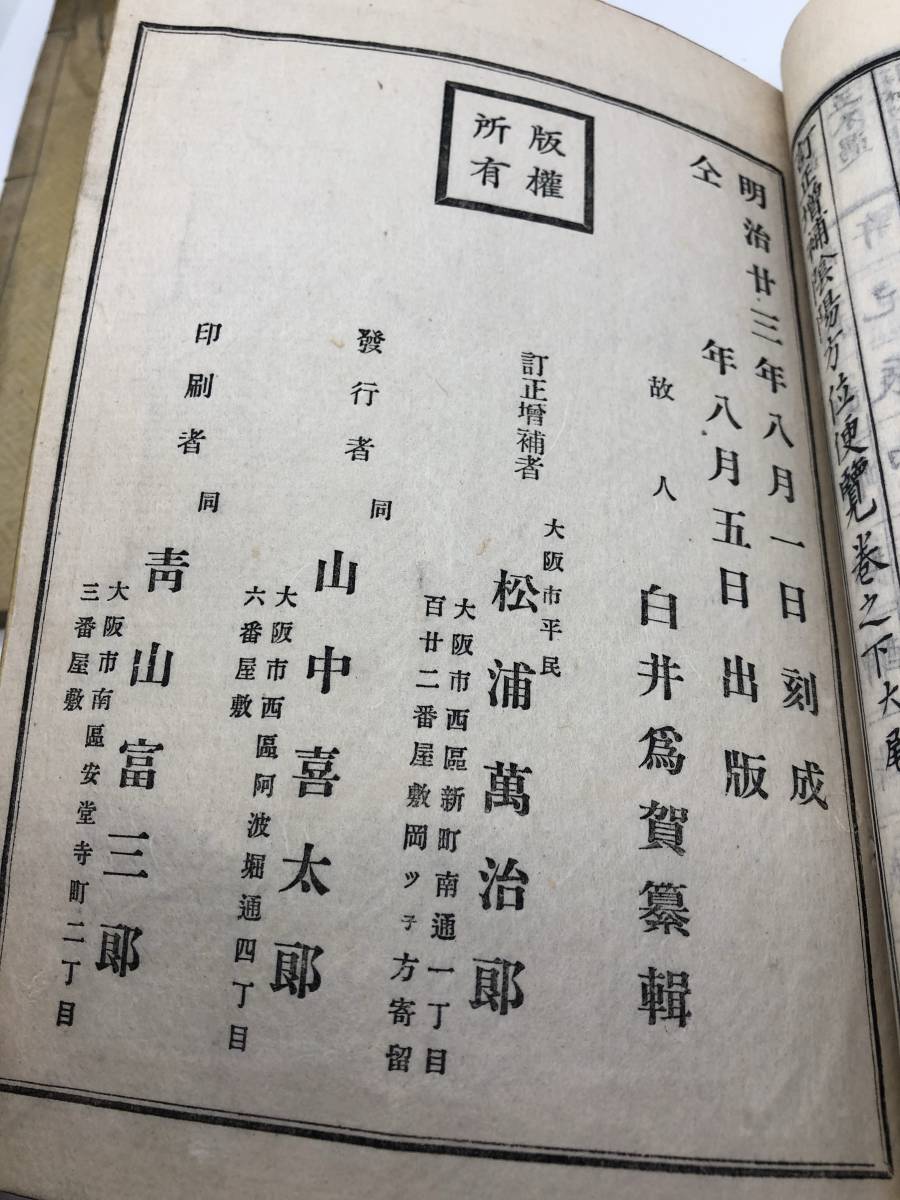 訂正增補陰陽方位便覽卷之下大尾
明治廿三年八月一日刻成
仝年八月五日出版
版權所有
故人 白井爲賀纂輯
訂正增補者
大阪市平民
松浦萬治郎
大阪市西區新町南通一丁目
百廿二番屋敷岡ッ子方寄留
發行者 同
山中喜太郎
大阪市西區阿波堀通四丁目
六番屋敷
印刷者 同
靑山富三郎
大阪市南區安堂寺町二丁目
三番屋敷